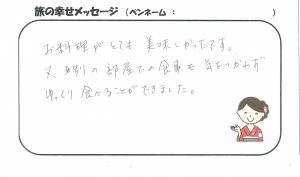 旅の幸せメッセージ（ペンネーム：　　　　　　　　）
お料理がとても美味しかったです。
又、別の部屋での食事も気をつかわず
ゆっくり食べることができました。